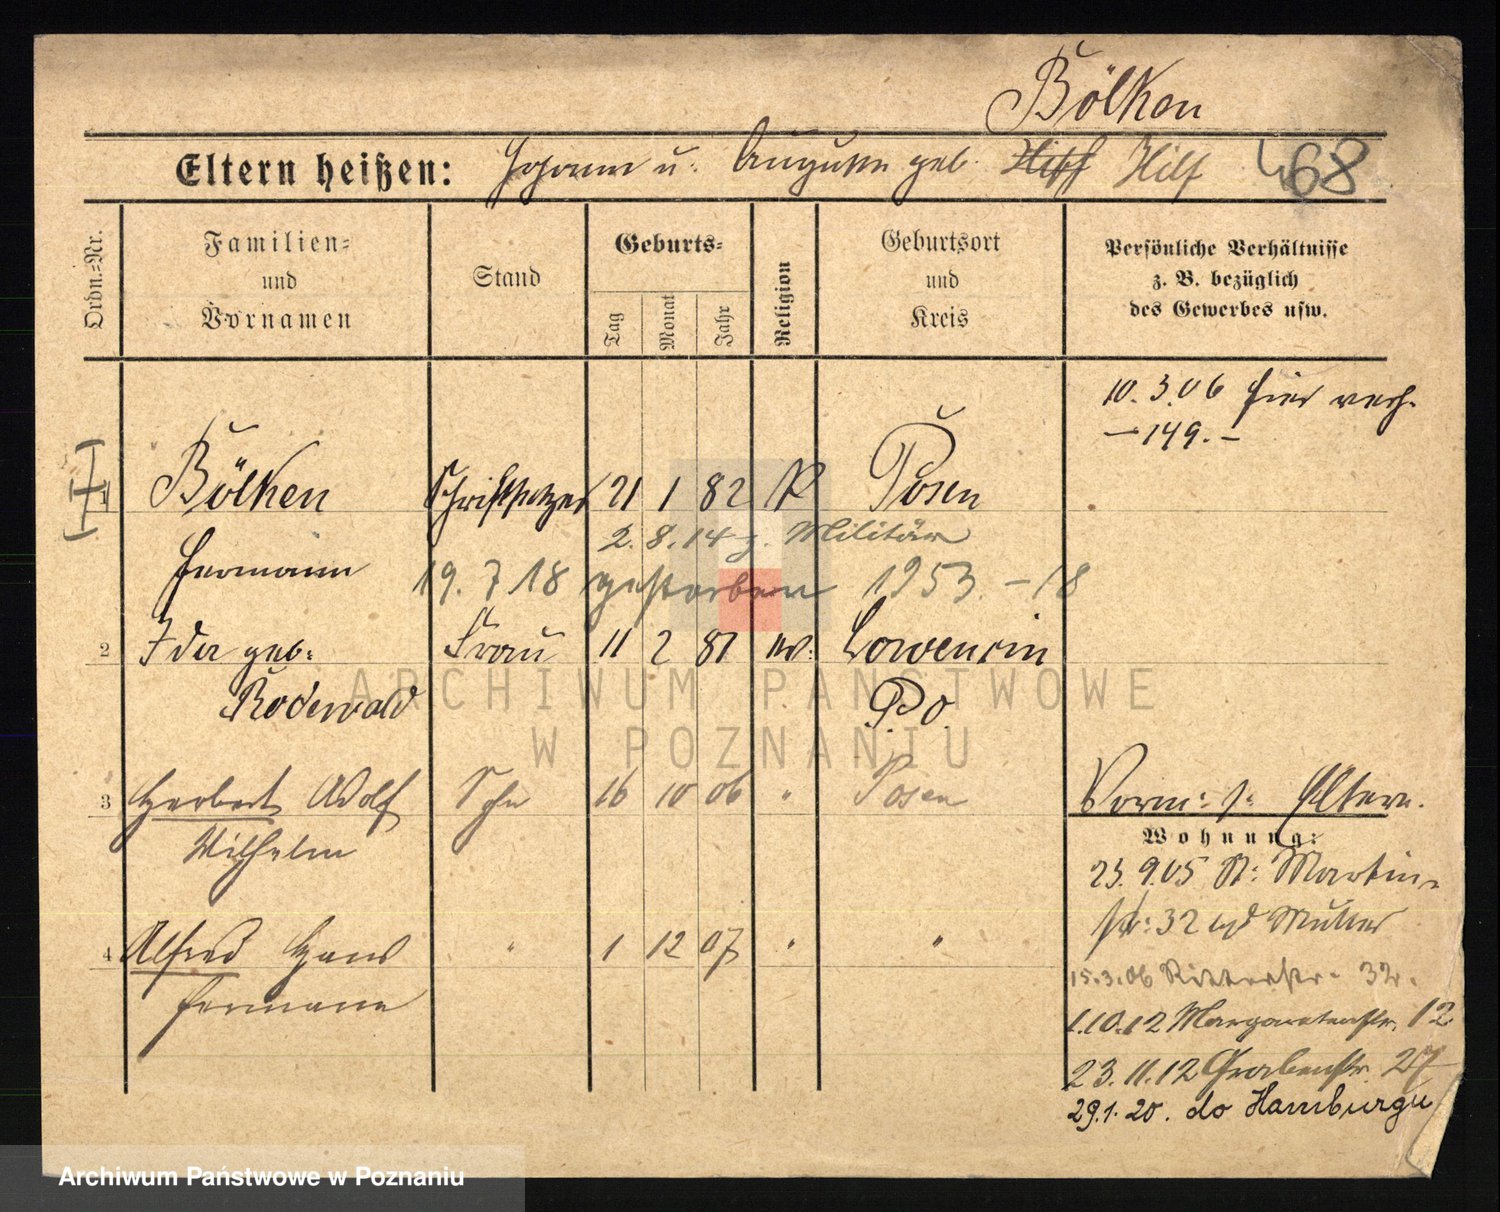 Bölken
Eltern heißen: Johann u. Auguste geb. Hipf Hilf 468
Ordn.=Nr.
Familien=
und
Vornamen
Stand
Geburts=
Tag
Monat
Jahr
Religion
Geburtsort
und
Kreis
Persönliche Verhältnisse
z. B. bezüglich
des Gewerbes usw.
10. 3. 06 hier verh.
— 149. —
1 Bölken Schriftsetzer 21 1 82 K Posen
2. 8. 14 z. Militär
Hermann 19. 7 18 gestorben 1953. – 18
2 Ida geb: Frau 11 2 81 ev: Lowencin
Rodewald P. O.
3 Herbert Adolf Sohn 16 10 06 " Posen
Wilhelm
Vorm: s: Eltern.
Wohnung:
4 Alfred Hans " 1 12 07 " "
Hermann
23. 9. 05 St: Martin-
str: 32 bei Müller
15.3.06 Ritterstr. 32.
1.10.12 Margaretenstr. 12
23.11.12 Grabenstr. 27
29.1.20. do Hamburgu
ARCHIWUM PAŃSTWOWE
W POZNANIU
Archiwum Państwowe w Poznaniu